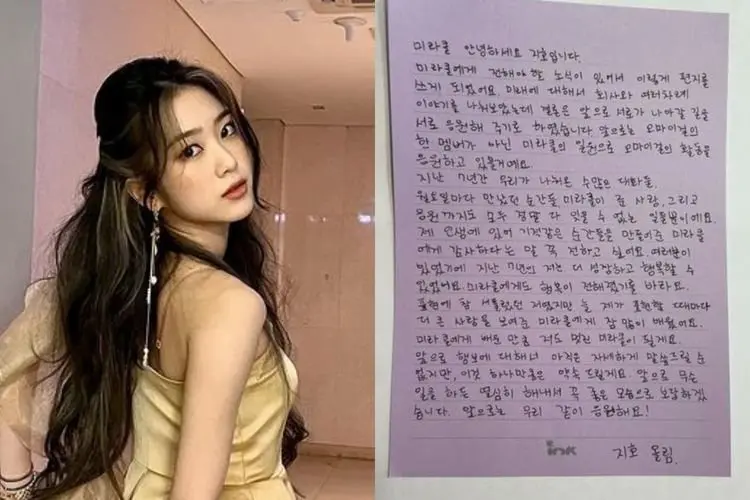 미라클 안녕하세요 지호입니다.
미라클에게 전해야 할 소식이 있어서 이렇게 편지를
쓰게 되었어요. 미래에 대해서 회사와 여러차례
이야기를 나눠보았는데 결론은 앞으로 서로가 나아갈 길을
서로 응원해 주기로 하였습니다. 앞으로는 오마이걸의
한 멤버가 아닌 미라클의 일원으로 오마이걸의 활동을
응원하고 있을거예요.
지난 7년간 우리가 나눠온 수많은 대화들,
월요일마다 만났던 순간들, 미라클이 준 사랑, 그리고
응원까지도 모두 정말 다 잊을 수 없는 일들뿐이에요.
제 인생에 있어 기적같은 순간들을 만들어준 미라클
에게 감사하다는 말 꼭 전하고 싶어요. 여러분이
있었기에 지난 7년의 저는 더 성장하고 행복할 수
있었어요. 미라클에게도 행복이 전해졌기를 바라요.
표현에 참 서툴렀던 저였지만 늘 제가 표현할 때마다
더 큰 사랑을 보여준 미라클에게 참 많이 배웠어요.
미라클에게 배운 만큼 저도 멋진 미라클이 될게요.
앞으로 행보에 대해서 아직은 자세하게 말씀드릴 순
없지만, 이것 하나만큼은 약속 드릴게요. 앞으로 무슨
일을 하든 열심히 해내서 꼭 좋은 모습으로 보답하겠
습니다. 앞으로는 우리 같이 응원해요!
ink
지호 올림.